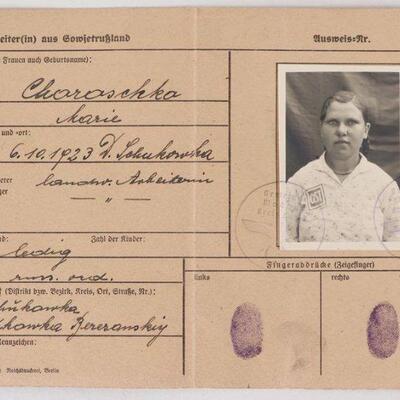 eiter(in) aus Sowjetrußland
Ausweis-Nr.
Frauen auch Geburtsname):
Charaschka
Marie
und -ort:
6.10.1923 D. Schukowka
erer
landw. Arbeiterin
iger
— " —
nd:
Zahl der Kinder:
ledig
russ. ord.
(Distrikt bzw. Bezirk, Kreis, Ort, Straße, Nr.):
Berezanskij
nnzeichen:
Reichsdruckerei, Berlin
Fingerabdrücke (Zeigefinger)
links
rechts
OST